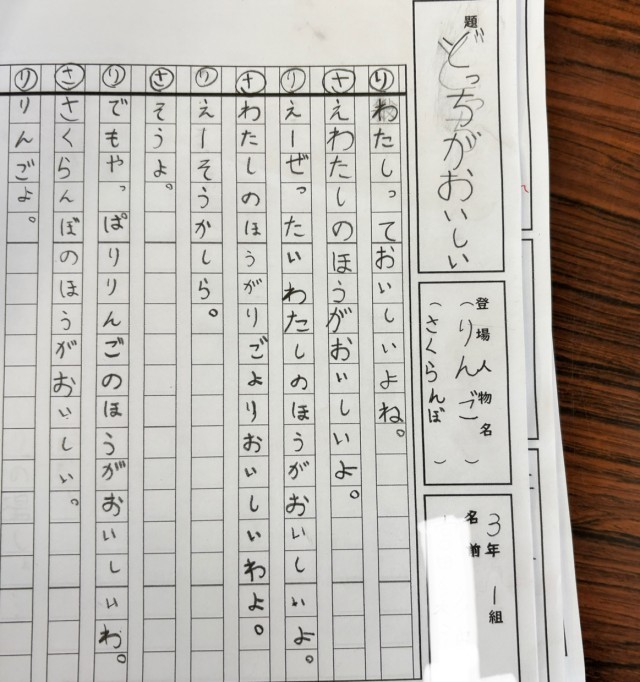 題
どっちがおいしい
登場人物名
(りんご)
(さくらんぼ)
3年 1組
名前
り わたしっておいしいよね。
さ えわたしのほうがおいしいよ。
り えーぜったいわたしのほうがおいしいよ。
さ わたしのほうがりごよりおいしいわよ。
り えーそうかしら。
さ そうよ。
り でもやっぱりりんごのほうがおいしいわ。
さ さくらんぼのほうがおいしい。
り りんごよ。